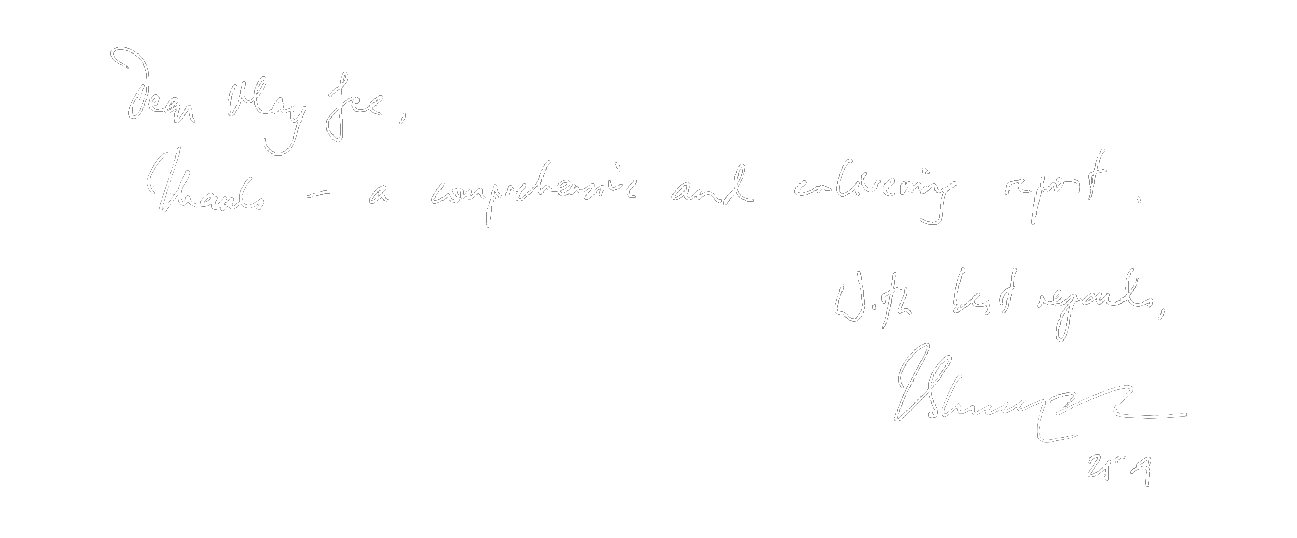 Dear May Jee,
Thanks – a comprehensive and enlivening report.
With best regards,